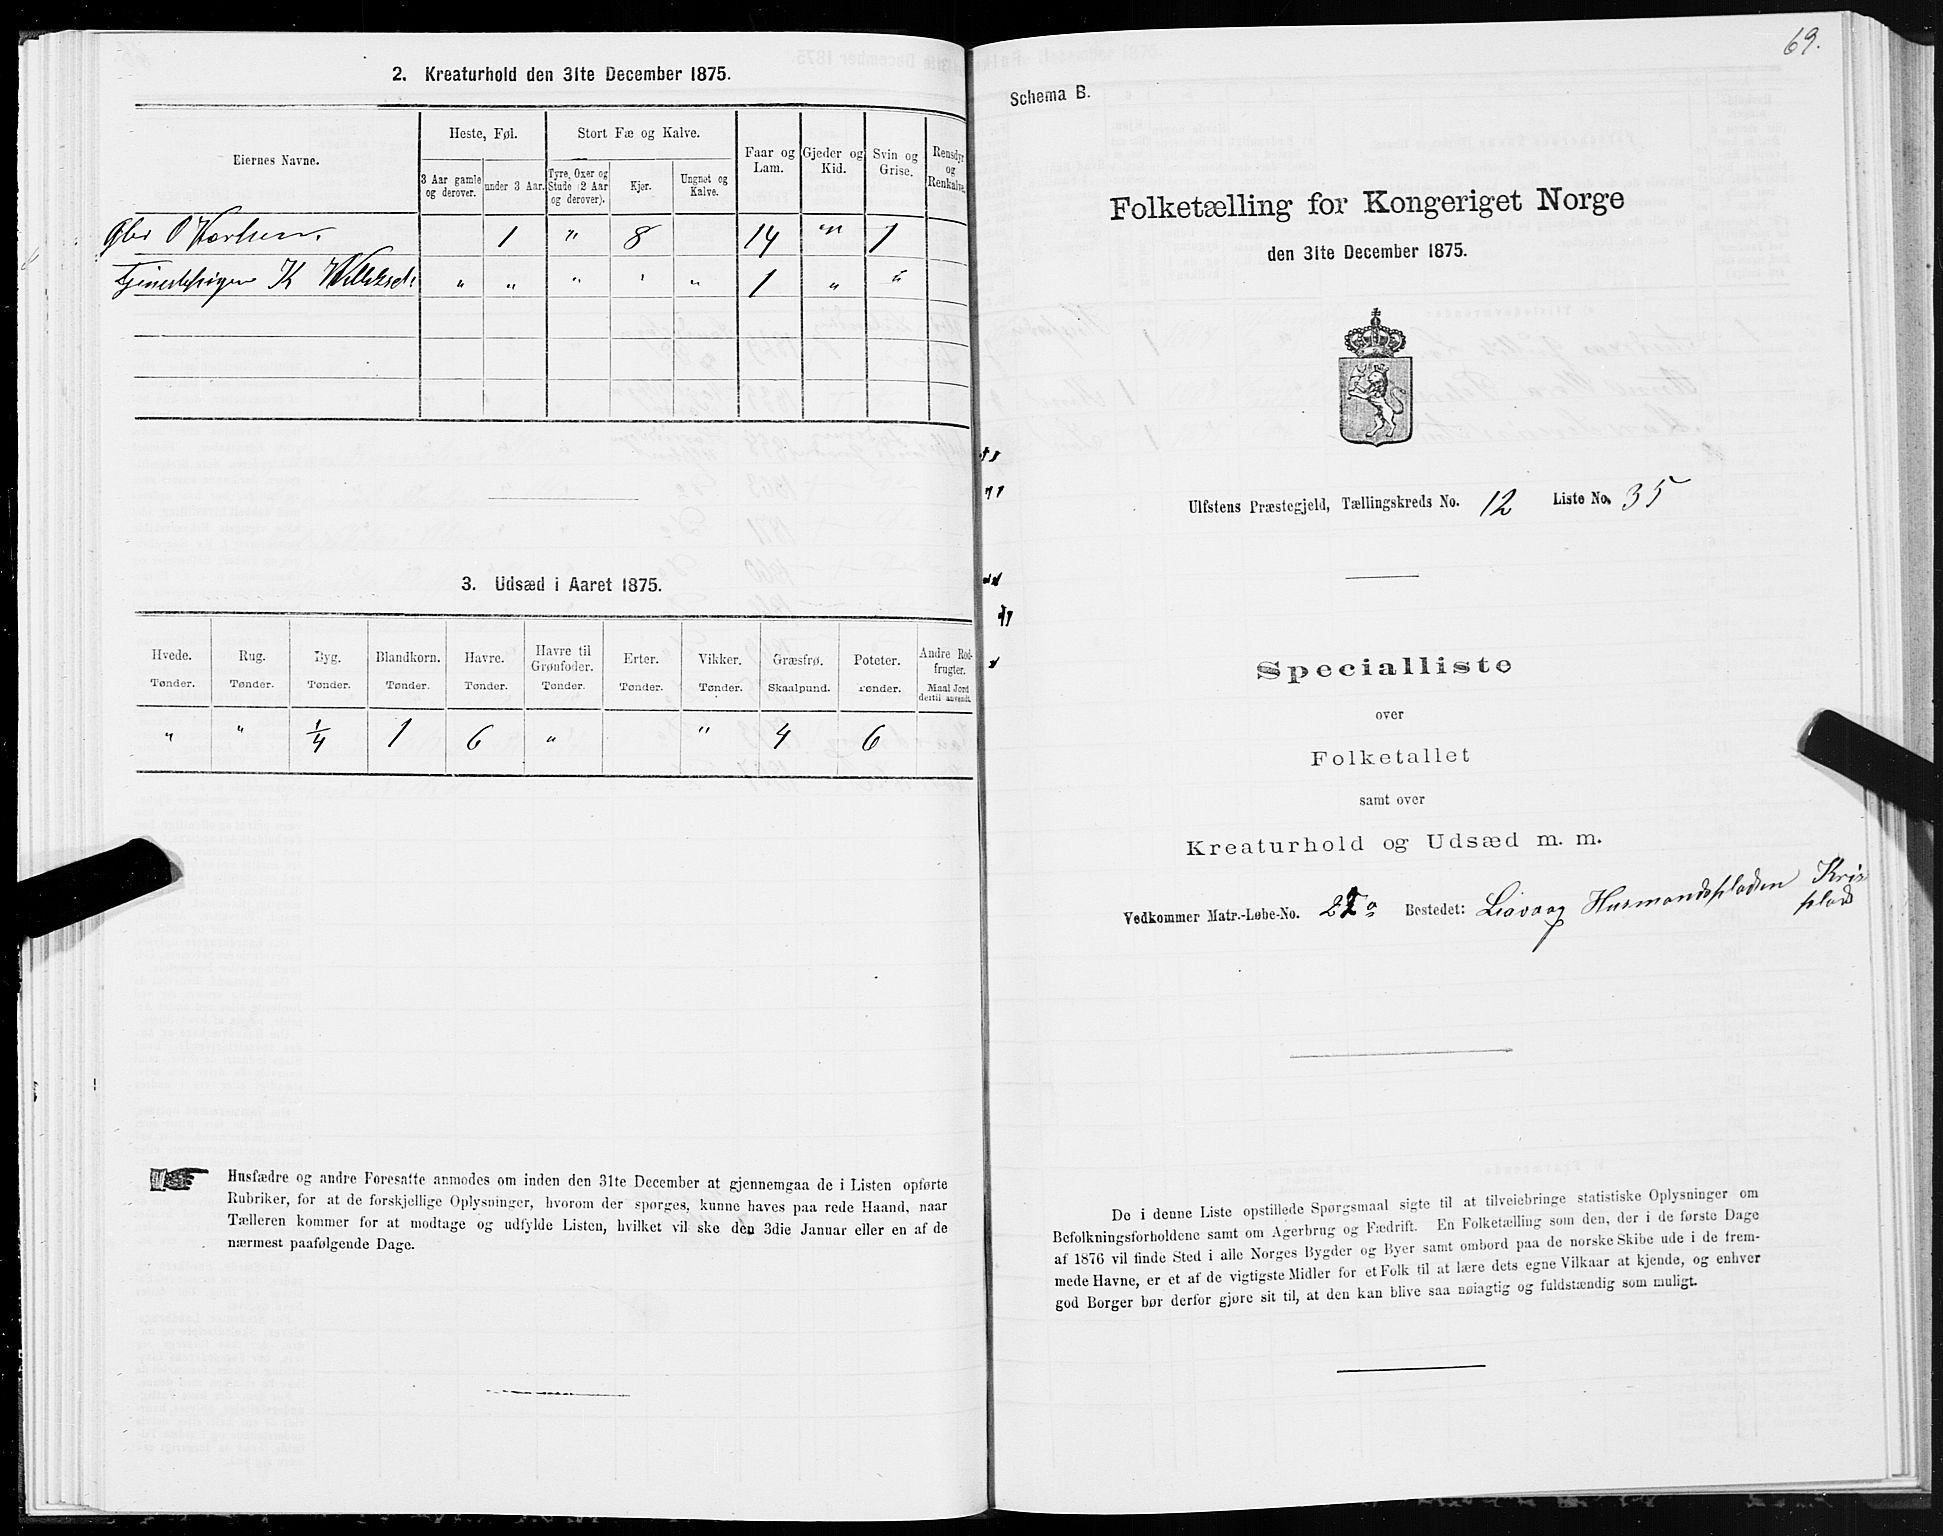 2. Kreaturhold den 31te December 1875.
Eiernes Navne.
Heste, Føl.
Stort Fæ og Kalve.
Faar og Lam.
Gjeder og Kid.
Svin og Grise.
Rensdyr og Renkalve.
3 Aar gamle og derover.
under 3 Aar.
Tyre, Oxer og Stude (2 Aar og derover).
Kjør.
Ungnøt og Kalve.
O 1 " 8 14 " 1
K " " " " " 1 " "
3. Udsæd i Aaret 1875.
Hvede. Rug. Byg. Blandkorn. Havre. Havre til Grønfoder. Erter. Vikker. Græsfrø. Poteter. Andre Rodfrugter.
Tønder. Tønder. Tønder. Tønder. Tønder. Tønder. Tønder. Tønder. Skaalpund. Tønder. Maal Jord dertil anvendt.
" " 1/4 1 6 " " 4 6
Husfædre og andre Foresatte anmodes om inden den 31te December at gjennemgaa de i Listen opførte
Rubriker, for at de forskjellige Oplysninger, hvorom der spørges, kunne haves paa rede Haand, naar
Tælleren kommer for at modtage og udfylde Listen, hvilket vil ske den 3die Januar eller en af de
nærmest paafølgende Dage.
69.
Schema B.
Folketælling for Kongeriget Norge
den 31te December 1875.
Ulfstens Præstegjeld, Tællingskreds No. 12 Liste No. 35
Specialliste
over
Folketallet
samt over
Kreaturhold og Udsæd m. m.
Vedkommer Matr.-Løbe-No. 22a Bestedet: Liavaag Husmandspladsen Kris
plads
De i denne Liste opstillede Spørgsmaal sigte til at tilveiebringe statistiske Oplysninger om
Befolkningsforholdene samt om Agerbrug og Fædrift. En Folketælling som den, der i de første Dage
af 1876 vil finde Sted i alle Norges Bygder og Byer samt ombord paa de norske Skibe ude i de frem-
mede Havne, er et af de vigtigste Midler for et Folk til at lære dets egne Vilkaar at kjende, og enhver
god Borger bør derfor gjøre sit til, at den kan blive saa nøiagtig og fuldstændig som muligt.